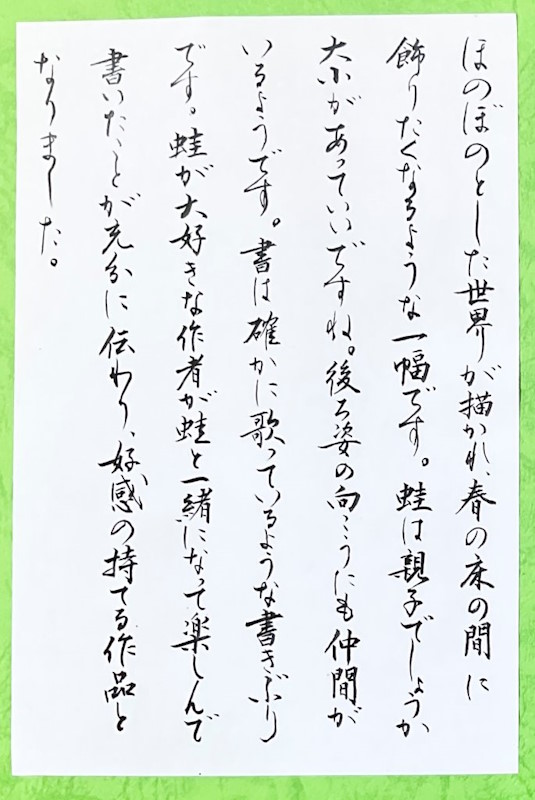 ほのぼのとした世界が描かれ、春の床の間に
飾りたくなるような一幅です。蛙は親子でしょうか
大小があっていいですね。後ろ姿の向こうにも仲間が
いるようです。書は確かに歌っているような書きぶり
です。蛙が大好きな作者が蛙と一緒になって楽しんで
書いたことが充分に伝わり、好感の持てる作品と
なりました。